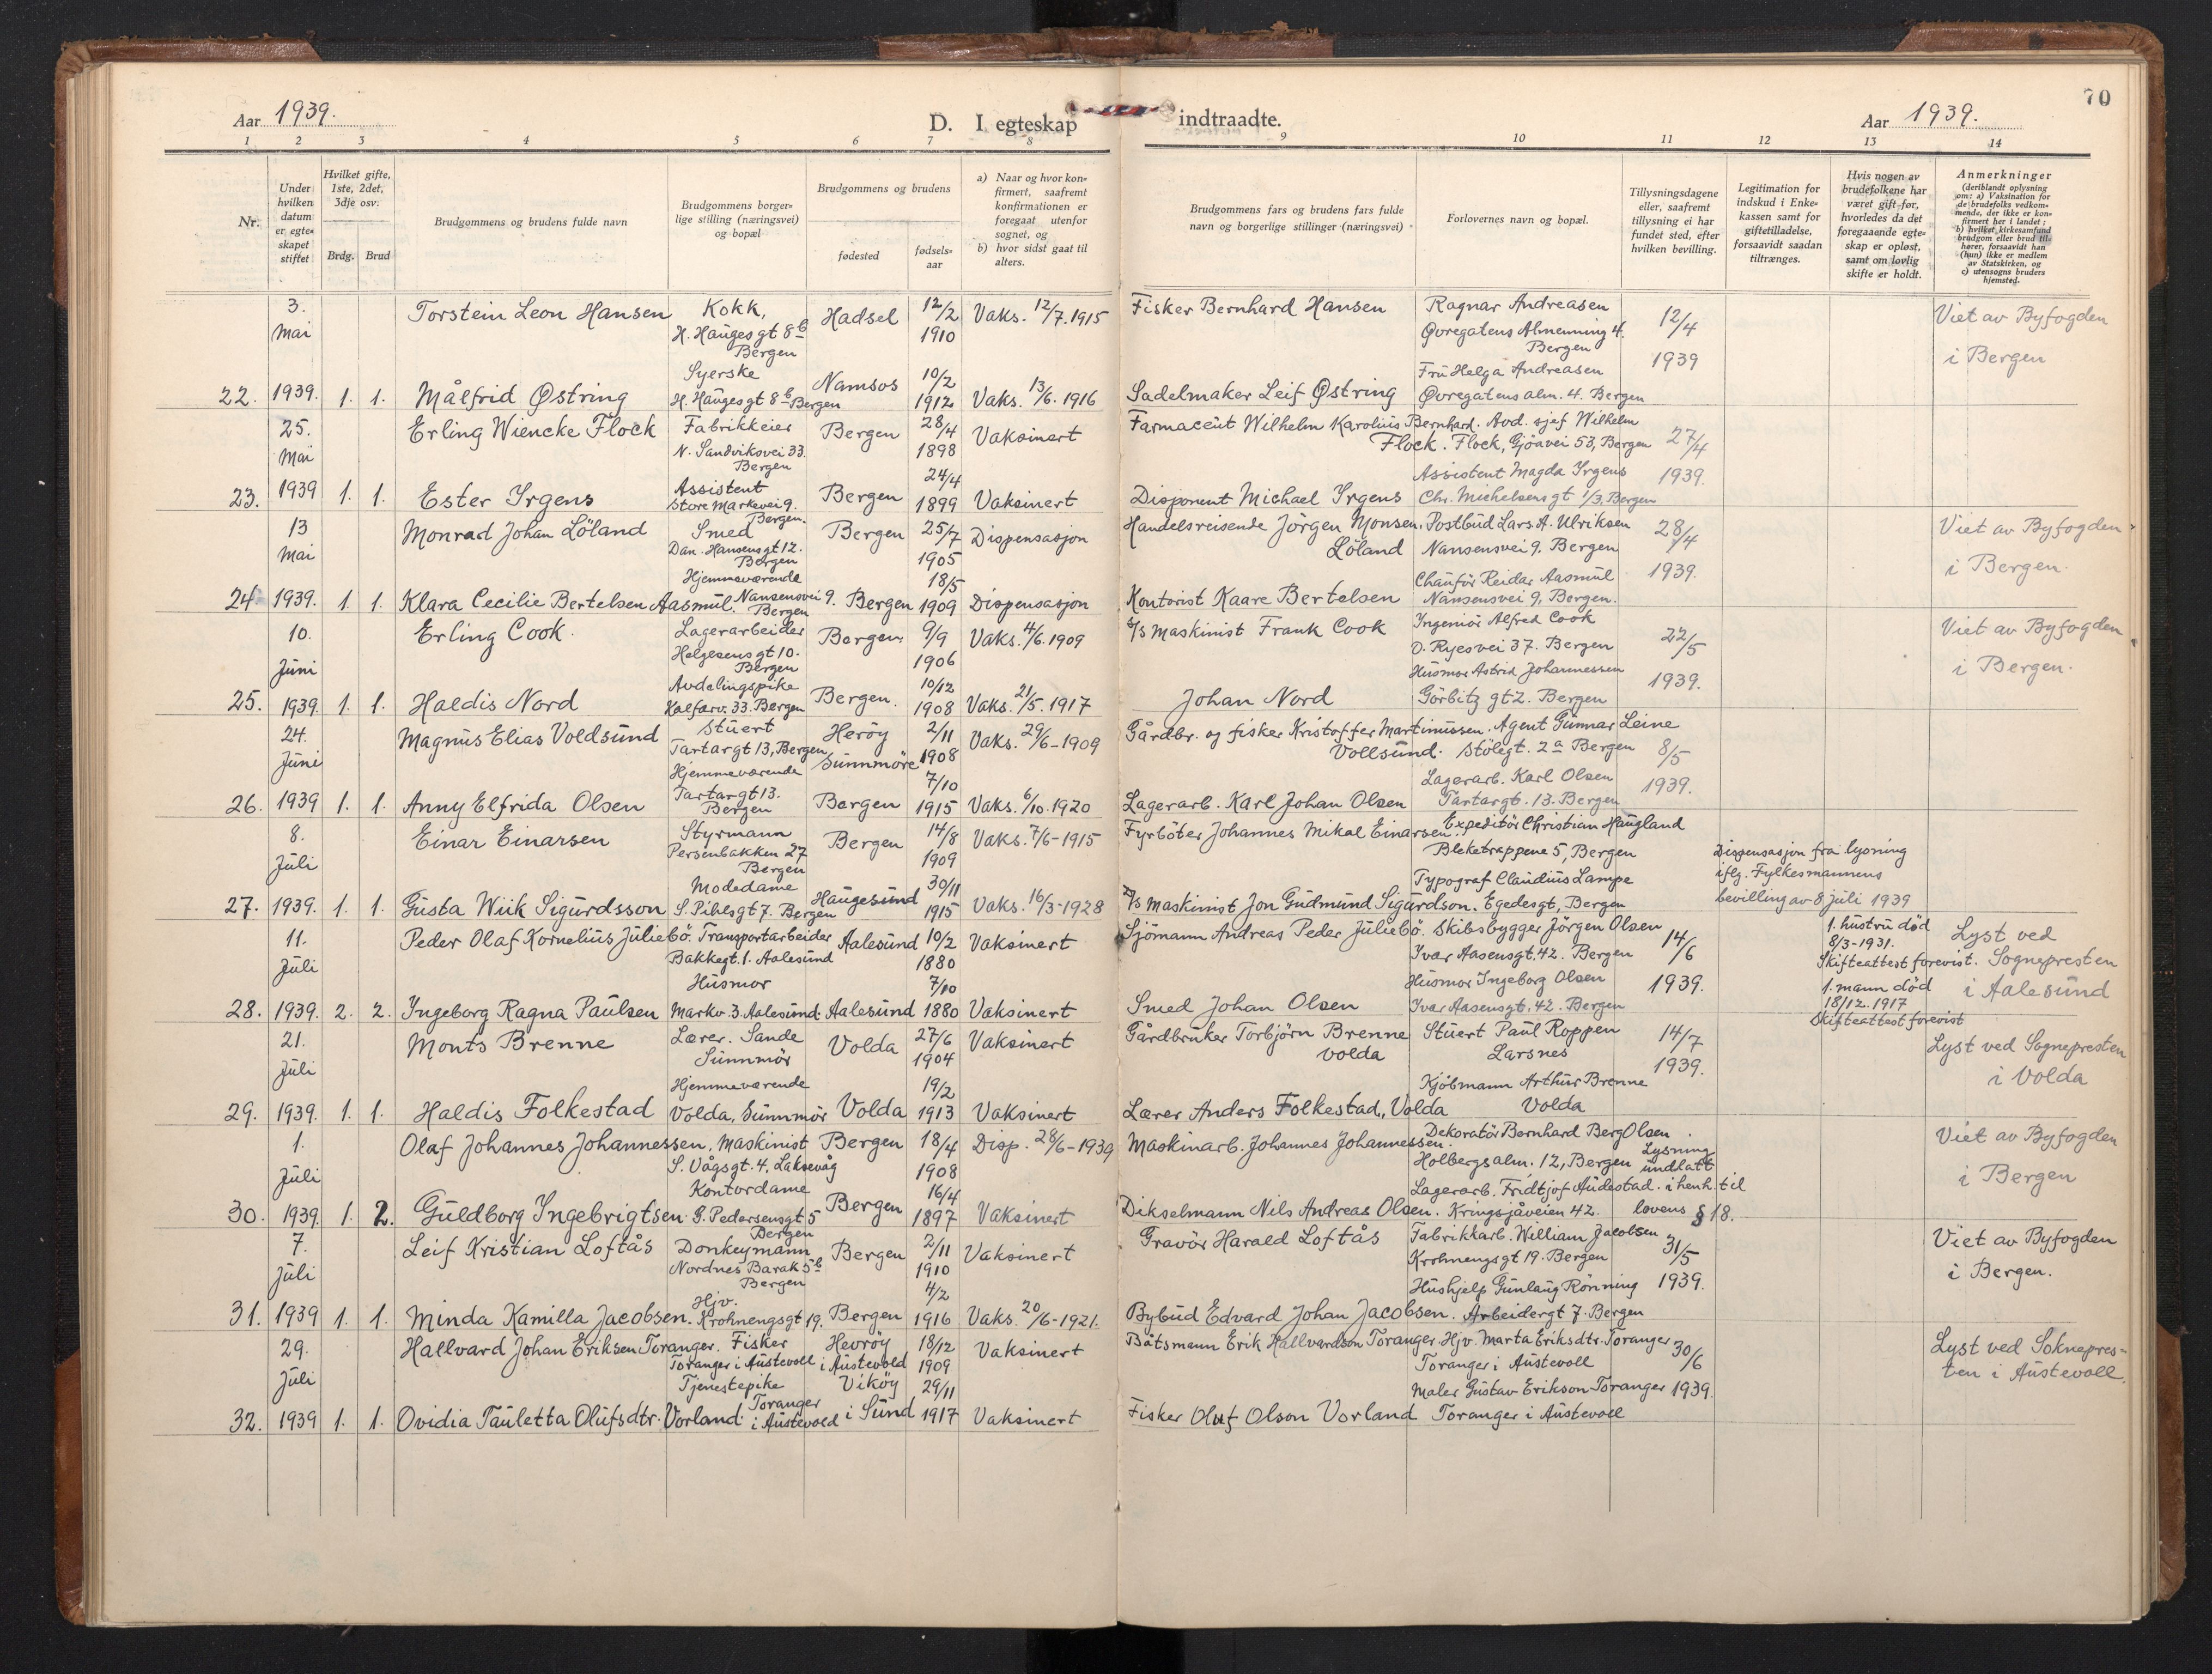 Aar 1939.
D. I egteskap indtraadte.
Aar 1939.
70
1 2 3 4 5 6 7 8 9 10 11 12 13 14
Nr.
Under hvilken datum er egteskapet stiftet
Hvilket gifte, 1ste, 2det, 3dje osv.
Brdg. Brud
Brudgommens og brudens fulde navn
Brudgommens borgerlige stilling (næringsvei) og bopæl
Brudgommens og brudens
fødested
fødselsaar
a) Naar og hvor konfirmert, saafremt konfirmationen er foregaat utenfor sognet, og
b) hvor sidst gaat til alters.
Brudgommens fars og brudens fars fulde navn og borgerlige stillinger (næringsvei)
Forlovernes navn og bopæl.
Tillysningsdagene eller, saafremt tillysning ei har fundet sted, efter hvilken bevilling.
Legitimation for indskud i Enkekassen samt for giftetilladelse, forsaavidt saadan tiltrænges.
Hvis nogen av brudefolkene har været gift før, hvorledes da det foregaaende egteskap er opløst, samt om lovlig skifte er holdt.
Anmerkninger
(deriblandt oplysning om: a) Vaksination for de brudefolks vedkommende, der ikke er konfirmert her i landet; b) hvilket kirkesamfund brudgom eller brud tilhører, forsaavidt han (hun) ikke er medlem av Statskirken, og c) utensogns bruders hjemsted.
22. 3. Mai 1939. 1. 1.
Torstein Leon Hansen Kokk, H. Hauges gt 8b Bergen Hadsel 12/2 1910 Vaks. 12/7.1915
Målfrid Østring Syerske H. Hauges gt 8b Bergen Namsos 10/2 1912 Vaks. 13/6. 1916
Fisker Bernhard Hansen
Sadelmaker Leif Østring
Ragnar Andreasen Øvregatens Almenning 4. Bergen
Fru Helga Andreasen Øvregatens alm. 4. Bergen
12/4 1939
Viet av Byfogden i Bergen
23. 25. Mai 1939 1. 1.
Erling Wiencke Flock Fabrikkeier N. Sandviksvei 33. Bergen Bergen 28/4 1898 Vaksinert
Ester Irgens Assistent Store Markevei 9. Bergen. Bergen 24/4 1899 Vaksinert
Farmaceut Wilhelm Karolius Bernhard Flock.
Disponent Michael Irgens
Avd. sjef Wilhelm Flock, Gjöavei 53, Bergen
Assistent Magda Irgens Chr. Michelsens gt 1/3. Bergen
27/4 1939.
24 13 Mai 1939. 1. 1.
Monrad Johan Löland Smed Dan. Hansens gt 12. Bergen Bergen 25/7 1905 Dispensasjon
Klara Cecilie Bertelsen Aasmul. Hjemmeværende Nansensvei 9. Bergen Bergen 18/5 1909 Dispensasjon
Handelsreisende Jörgen Monsen Löland
Kontorist Kaare Bertelsen
Postbud Lars A. Ulriksen Nansensvei 9. Bergen
Chauför Reidar Aasmul Nansensvei 9, Bergen.
28/4 1939.
Viet av Byfogden i Bergen.
25. 10. Juni 1939. 1. 1.
Erling Cook. Lagerarbeider Helgesens gt 10. Bergen Bergen. 9/9 1906 Vaks. 4/6. 1909
Haldis Nord Avdelingspike Kalfarv. 33. Bergen Bergen. 10/12 1908 Vaks. 21/5. 1917
S/S Maskinist Frank Cook
Johan Nord
Ingeniör Alfred Cook O. Ryesvei 37. Bergen
Husmor Astrid Johannessen Görbitz gt 2. Bergen
22/5 1939.
Viet av Byfogden i Bergen.
26. 24. Juni 1939 1. 1.
Magnus Elias Voldsund Stuert Tartargt 13, Bergen Heröy Sunnmöre 2/11 1908 Vaks. 29/6-1909
Anny Elfrida Olsen Hjemmeværende Tartargt 13. Bergen Bergen 7/10 1915 Vaks. 6/10. 1920
Gårdbr. og fisker Kristoffer Martinussen Vollsund.
Lagerarb. Karl Johan Olsen
Agent Gunnar Leine Stölegt. 2a Bergen
Lagerarb. Karl Olsen Tartargt. 13. Bergen
8/5 1939.
27. 8. Juli 1939. 1. 1.
Einar Einarsen Styrmann Persenbakken 27 Bergen Bergen 14/8 1909 Vaks. 7/6-1915
Gusta Wiik Sigurdsson Modedame S. Pihlsgt 7. Bergen Haugesund 30/11 1915 Vaks. 16/3-1928
Fyrböter Johannes Mikal Einarsen.
S/S Maskinist Jon Gudmund Sigurdson.
Expeditör Christian Haugland Bleketrappene 5, Bergen
Typograf Claudius Lampe Egedesgt, Bergen
Dispensasjon fra lysning iflg. Fylkesmannens bevilling av 8 juli 1939
28. 11. Juli 1939. 2. 2.
Peder Olaf Kornelius Juliebö. Transportarbeider Bakkegt. 1. Aalesund Aalesund 10/2 1880 Vaksinert
Ingeborg Ragna Paulsen Husmor Markv. 3. Aalesund. Aalesund 7/10 1880 Vaksinert
Sjömann Andreas Peder Juliebö.
Smed Johan Olsen
Skibsbygger Jörgen Olsen Ivar Aasensgt. 42. Bergen
Husmor Ingeborg Olsen Ivar Aasensgt. 42. Bergen
14/6 1939.
1. hustru död 8/3-1931. Skifteattest forevist.
1. mann död 18/12. 1917 Skifteattest forevist
Lyst ved Sognepresten i Aalesund
29. 21. Juli 1939. 1. 1.
Monts Brenne Lærer. Sande Sunnmör Volda 27/6 1904 Vaksinert
Haldis Folkestad Hjemmeværende Volda, Sunnmör Volda 19/2 1913 Vaksinert
Gårdbruker Torbjörn Brenne Volda
Lærer Anders Folkestad, Volda
Stuert Paul Roppen Larsnes
Kjöbmann Arthur Brenne Volda
14/7 1939.
Lyst ved Sognepresten i Volda
30. 1. Juli 1939. 1. 2.
Olaf Johannes Johannessen. Maskinist S. Vågsgt. 4. Laksevåg Bergen 18/4 1908 Disp. 28/6-1939
Guldborg Ingebrigtsen. Kontordame G. Pedersensgt 5 Bergen Bergen 16/4 1897 Vaksinert
Maskinarb. Johannes Johannessen.
Dikselmann Nils Andreas Olsen.
Dekoratör Bernhard Berg Olsen. Holbergsalm. 12, Bergen
Lagerarb. Fridtjof Audestad. Kringsjåveien 42.
Lysning undlatt i henh. til lovens § 18.
Viet av Byfogden i Bergen
31. 7. Juli 1939 1. 1.
Leif Kristian Loftås Donkeymann Nordnes Barak 5b Bergen Bergen 2/11 1910 Vaksinert
Minda Kamilla Jacobsen. Hjv. Krohnengsgt 19. Bergen 4/2 1916 Vaks. 20/6-1921.
Gravör Harald Loftås
Bybud Edvard Johan Jacobsen.
Fabrikkarb. William Jacobsen Krohnengsgt 19. Bergen
Hushjelp Gunlaug Rönning Arbeidergt 7. Bergen
31/5 1939.
Viet av Byfogden i Bergen.
32. 29. Juli 1939 1. 1.
Hallvard Johan Eriksen Toranger. Fisker Toranger i Austevoll Hevröy i Austevold 18/12 1909 Vaksinert
Ovidia Pauletta Olufsdtr. Vorland. Tjenestepike Toranger i Austevold Viköy i Sund 29/11 1917 Vaksinert
Båtsmann Erik Hallvardson Toranger.
Fisker Oluf Olson Vorland
Hjv. Marta Eriksdtr. Toranger Toranger i Austevoll
Maler Gustav Erikson Toranger Toranger i Austevoll
30/6 1939.
Lyst ved Soknepresten i Austevoll.